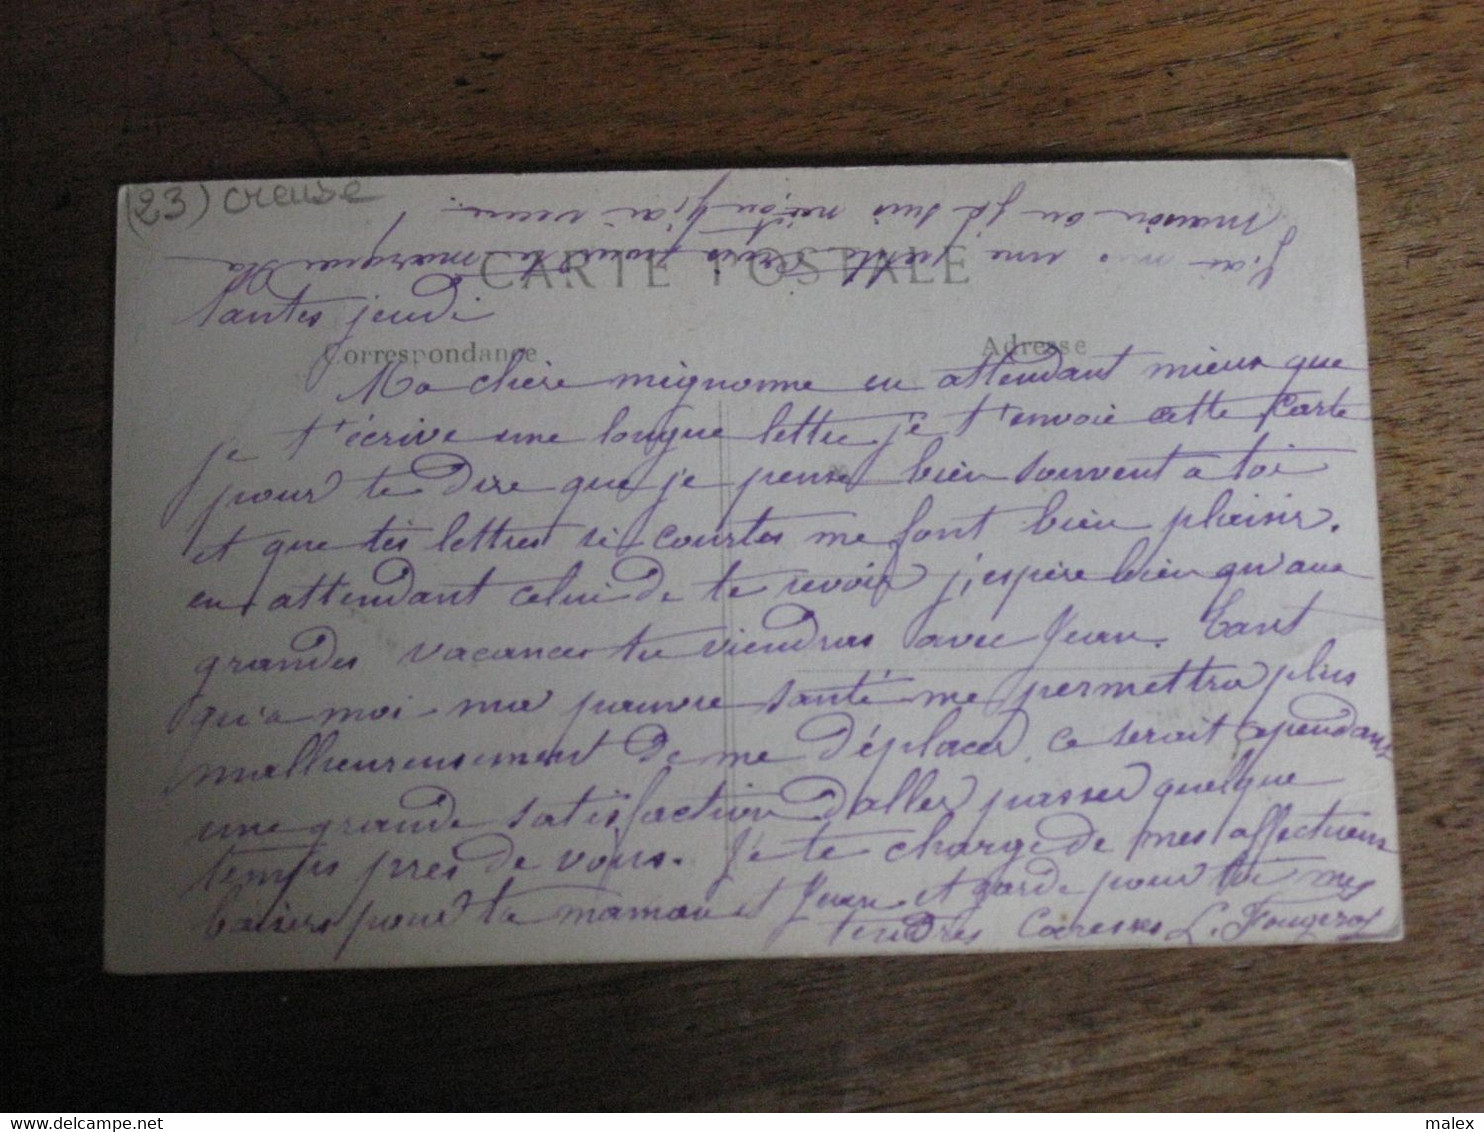 (23) creuse
J'ai mis une petite croix pour te marquer la
maison ou je suis né, ou j'ai vecu.
CARTE POSTALE
Nantes jeudi
Correspondance
Adresse
Ma chère mignonne en attendant mieux que
je t'écrive une longue lettre je t'envoie cette carte
pour te dire que je pense bien souvent a toi
et que tes lettres si courtes me font bien plaisir.
en attendant celui de te revoir j'espère bien qu'aux
grandes vacances tu viendras avec Jean. Tant
qu'a moi ma pauvre santé me permettra plus
malheureusement de me déplacer ce serait cependant
une grande satisfaction d'aller passer quelque
temps pres de vous. Je te charge de mes affectueux
baisers pour ta maman et Jean et garde pour toi mes
tendres Caresses L. Fougerol
delcampe.net
malex